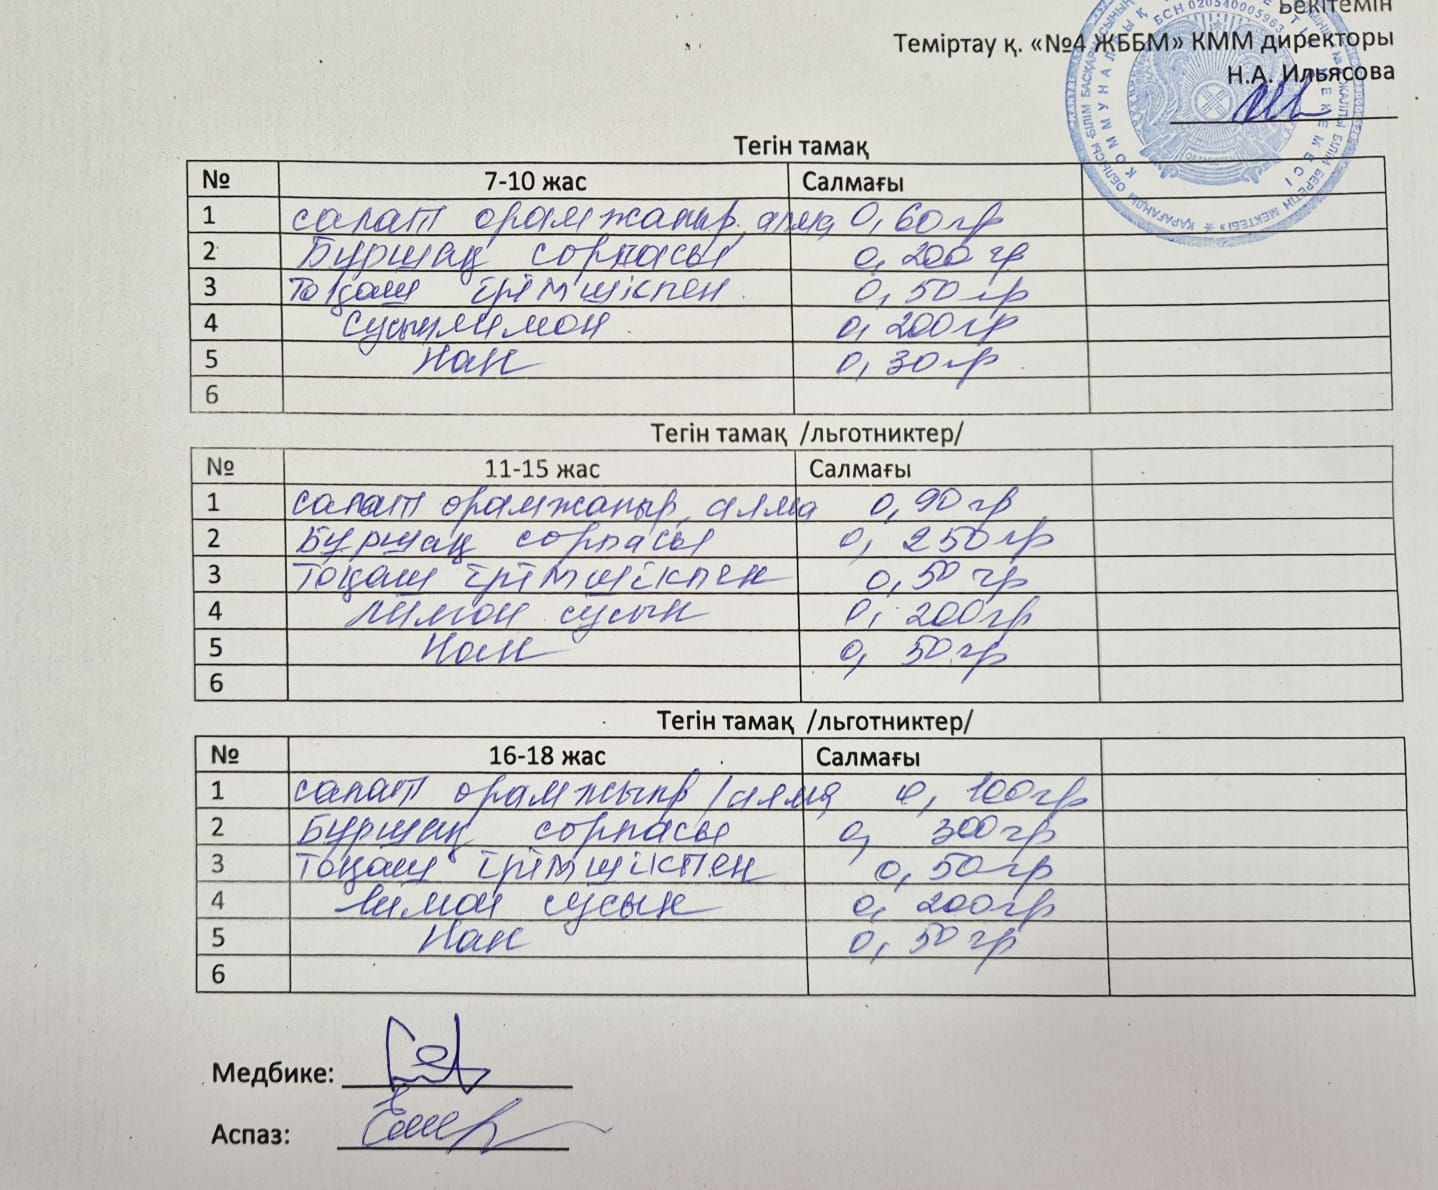 Бекітемін
Теміртау қ. «№4 ЖББМ» КММ директоры
Н.А. Ильясова
БСН 020540005963
Тегін тамақ
№ 7-10 жас Салмағы
1 салат орамжапыр, алма 0,60гр
2 Бұршақ сорпасы 0,200 гр
3 Тоқаш ірімшікпен 0,50 гр
4 Сусын лимон 0,200гр
5 Нан 0,30гр
6
Тегін тамақ /льготниктер/
№ 11-15 жас Салмағы
1 салат орамжапыр, алма 0,90гр
2 Бұршақ сорпасы 0,250гр
3 Тоқаш ірімшікпен 0,50 гр
4 лимон сусын 0,200гр
5 Нан 0,50гр
6
Тегін тамақ /льготниктер/
№ 16-18 жас Салмағы
1 салат орамжыпр /алма 0,100гр
2 Бұршақ сорпасы 0,300гр
3 Тоқаш ірімшікпен 0,50гр
4 лимон сусын 0,200гр
5 Нан 0,50гр
6
Медбике:
Аспаз: